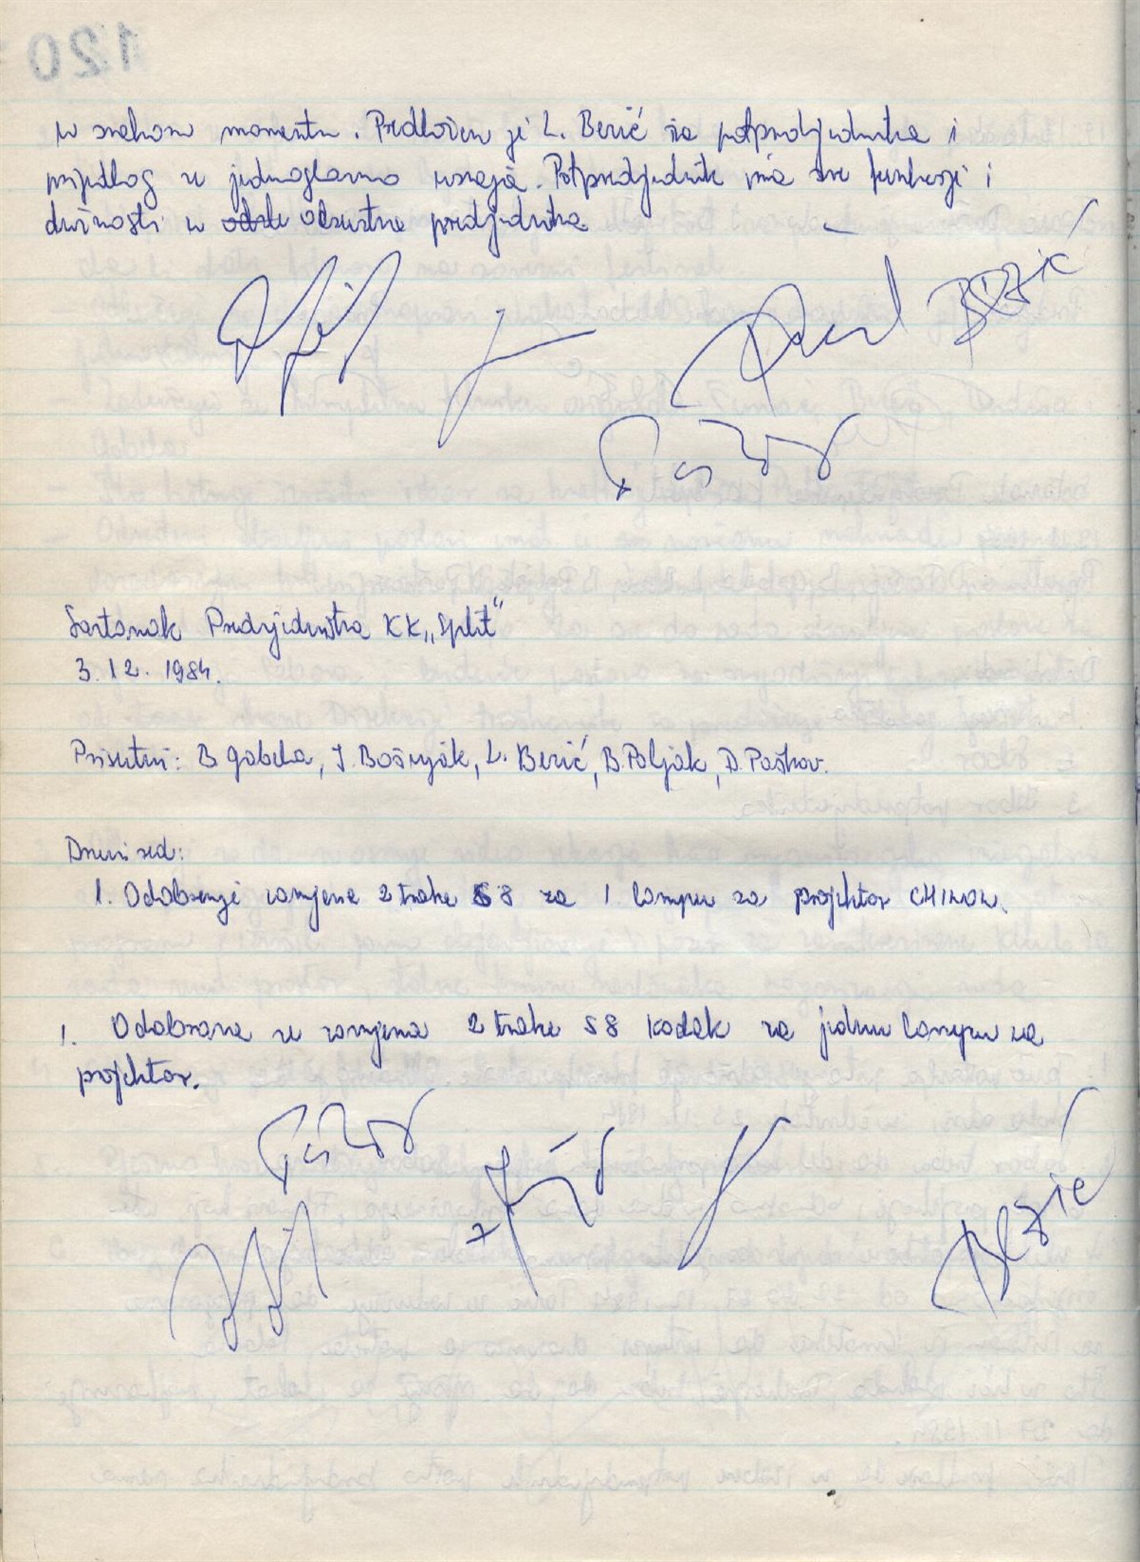 u svakom momentu. Predložen je L. Bezić za potpredsjednika i
prijedlog se jednoglasno usvaja. Potpredsjednik ima sve funkcije i
dužnosti u odsutne predsjednika
BEZIĆ
Sastanak Predsjedništva KK „Split“
3.12. 1984.
Prisutni: B Gabela, J. Bošnjak, L. Bezić, B. Poljak, D. Paškov.
Dnevni red:
1. Odobrenje zamjene 2 trake S8 za 1 lampu za projektor CHINON.
1. Odobrava se zamjena 2 trake S8 Kodak za jednu lampu za
projektor.
Bezić